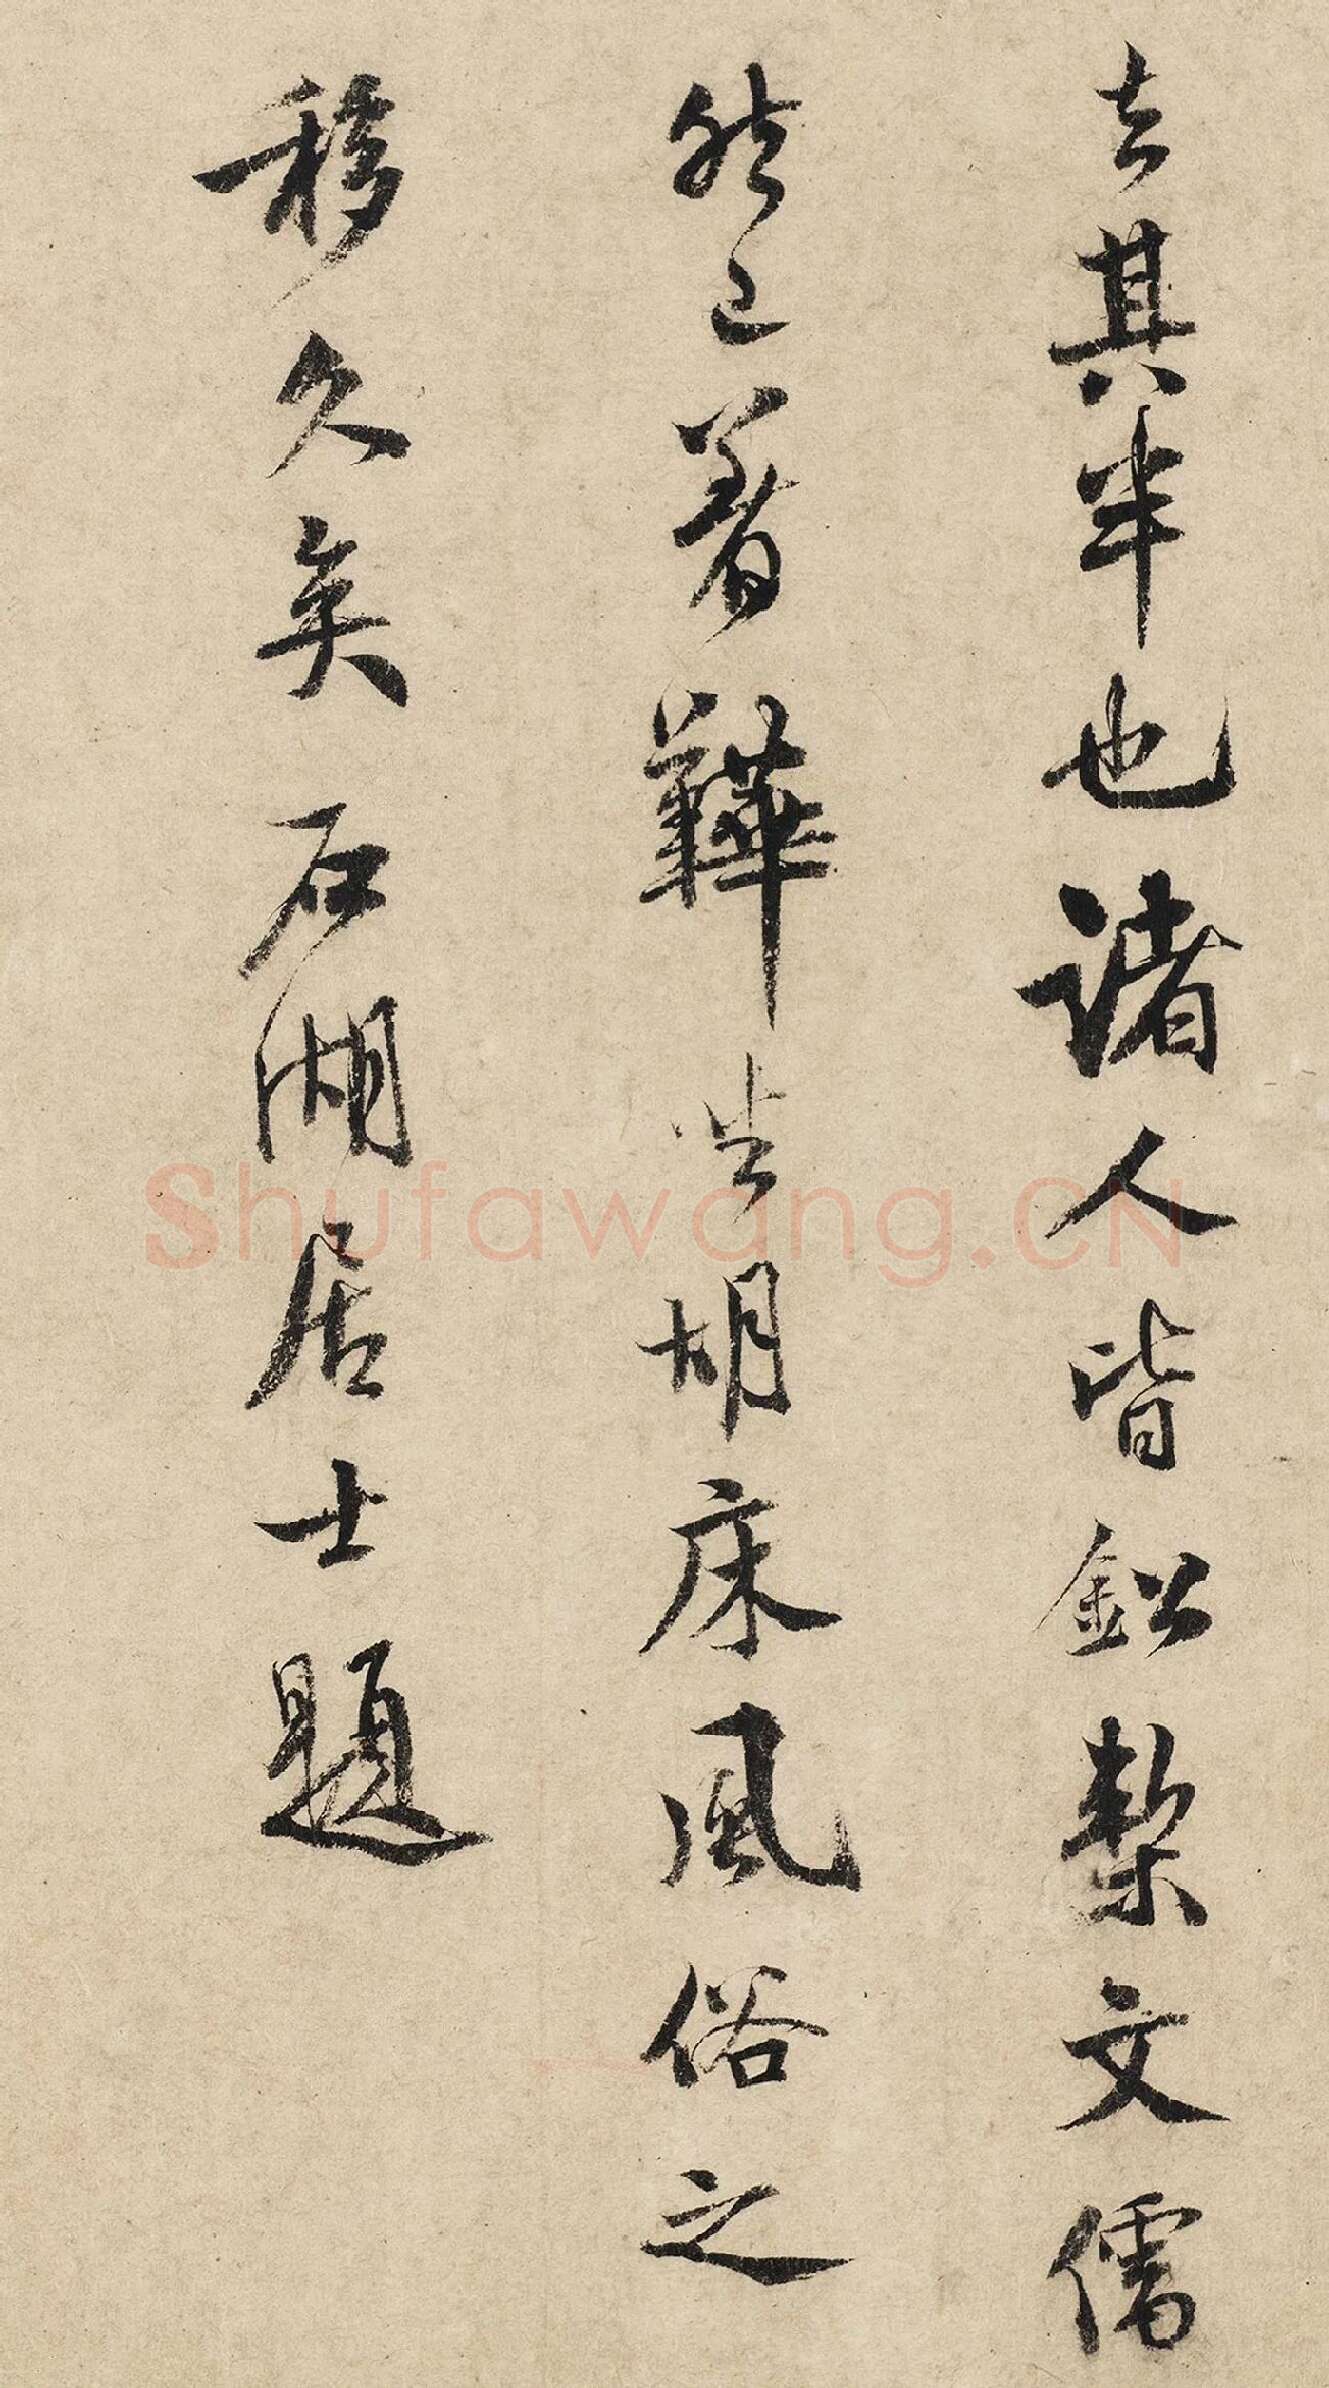 去其半也諸人皆鈆槧文儒
然已著鞾坐胡床風俗之
移久矣石湖居士題
Shufawang.CN